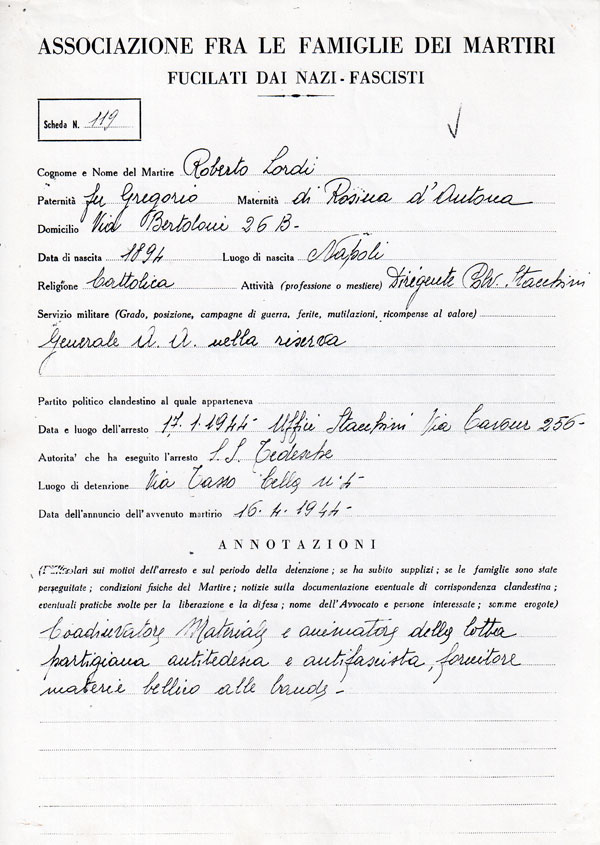 ASSOCIAZIONE FRA LE FAMIGLIE DEI MARTIRI
FUCILATI DAI NAZI-FASCISTI
Scheda N. 119
Cognome e Nome del Martire Roberto Lordi
Paternità fu Gregorio Maternità di Rosina d'Antona
Domicilio Via Bertoloni 26 B-
Data di nascita 1894 Luogo di nascita Napoli
Religione Cattolica Attività (professione o mestiere) Dirigente Polv. Stacchini
Servizio militare (Grado, posizione, campagne di guerra, ferite, mutilazioni, ricompense al valore)
Generale A. A. nella riserva
Partito politico clandestino al quale apparteneva
Data e luogo dell'arresto 17.1.1944- Uffici Stacchini Via Cavour 256-
Autorita' che ha eseguito l'arresto S.S. Tedesche
Luogo di detenzione Via Tasso Cella n° 4-
Data dell'annuncio dell'avvenuto martirio 16.4.1944-
ANNOTAZIONI
sui motivi dell'arresto e sul periodo della detenzione; se ha subito supplizi; se le famiglie sono state
perseguitate; condizioni fisiche del Martire; notizie sulla documentazione eventuale di corrispondenza clandestina;
eventuali pratiche svolte per la liberazione e la difesa; nome dell'Avvocato e persone interessate; somme erogate)
Materiale e animatore della lotta
partigiana antitedesca e antifascista, fornitore
materie bellico alle bande-